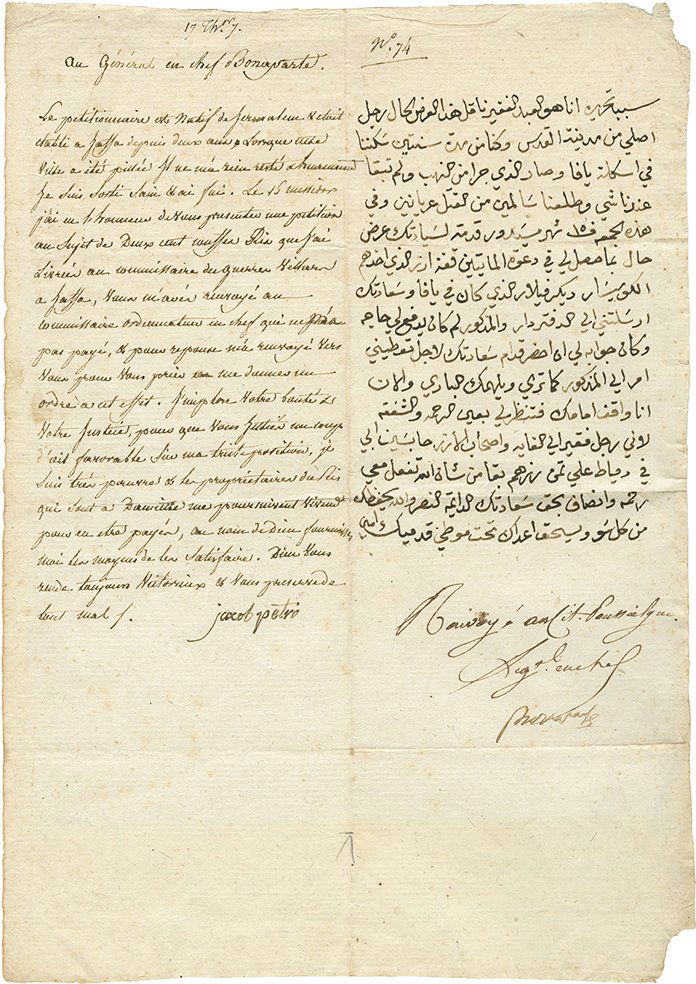 17 Th.or 7.
Au Général en chef Bonaparte.
Le petitionnaire est Natif de Jerusalem & etait
etabli a Jaffa depuis deux ans, Lorsque cette
Ville a été pillée Il ne m'a rien resté &
Je Suis Sorti Sain & ai fui. Le 15 messidor
j'ai eu l'honneur de Vous presenter une petition
au Sujet de Deux cent couffes Ris que j'ai
Livrée au commissaire des Guerres
a Jaffa, Vous m'avés renvoyé au
commissaire ordonnateur en chef qui ne m'a
pas payé, & pour reponse m'a renvoyé vers
Vous pour Vous prier me donner un
ordre a cet effet. J'implore Votre bonté &
Votre Justice, pour que Vous Jettiés un coup
d'œil favorable Sur ma triste position, je
Suis très pauvre & les proprietaires du Ris
qui Sont a Damiette me poursuivent
pour en etre payés, au nom de Dieu fournissés
moi les moyens de les Satisfaire. Dieu Vous
rende toujours Victorieux & Vous preserve de
tout mal
jacob petro
N.o 74
سبب تحريره انا هو العبد الفقير ناقل هذا العرض حال رجل
اصلي من مدينة القدس وكنا من مدة سنتين سكنا
في اسكلة يافا وصار الذي جرا من النهب ولم تبقا
عندنا شي وطلعنا سالمين من القتل عريانين وفي
هذه الجمعه في ١٥ شهر مسيدور قدمة لسيادتك عرض
حال بما حصل لي في دعوة المايتين قفة ارز الذي اخدهم
الكوميسار الذي كان في يافا وسعادتك
ارسلتني الى الدفتردار والمذكور لم كان يدفع لي حاجه
وكان جوابه لي ان احضر قدام سعادتك لاجل تعطيني
امر الى المذكور كما ترى ويلهمك الباري والان
انا واقف امامك فتنظر لي بعين الرحمه والشفقه
لاني رجل فقير الى الغايه واصحاب الارز حابسين
في دمياط على تمن رزهم بقا من شان الله تفعل معي
رحمه وانصاف بحق سعادتك الدايمه النصر والله يحفظك
من كل سو ويسحق اعداك تحت موطي قدميك امين
Renvoyé au Cit. Poussielgue
Bonaparte